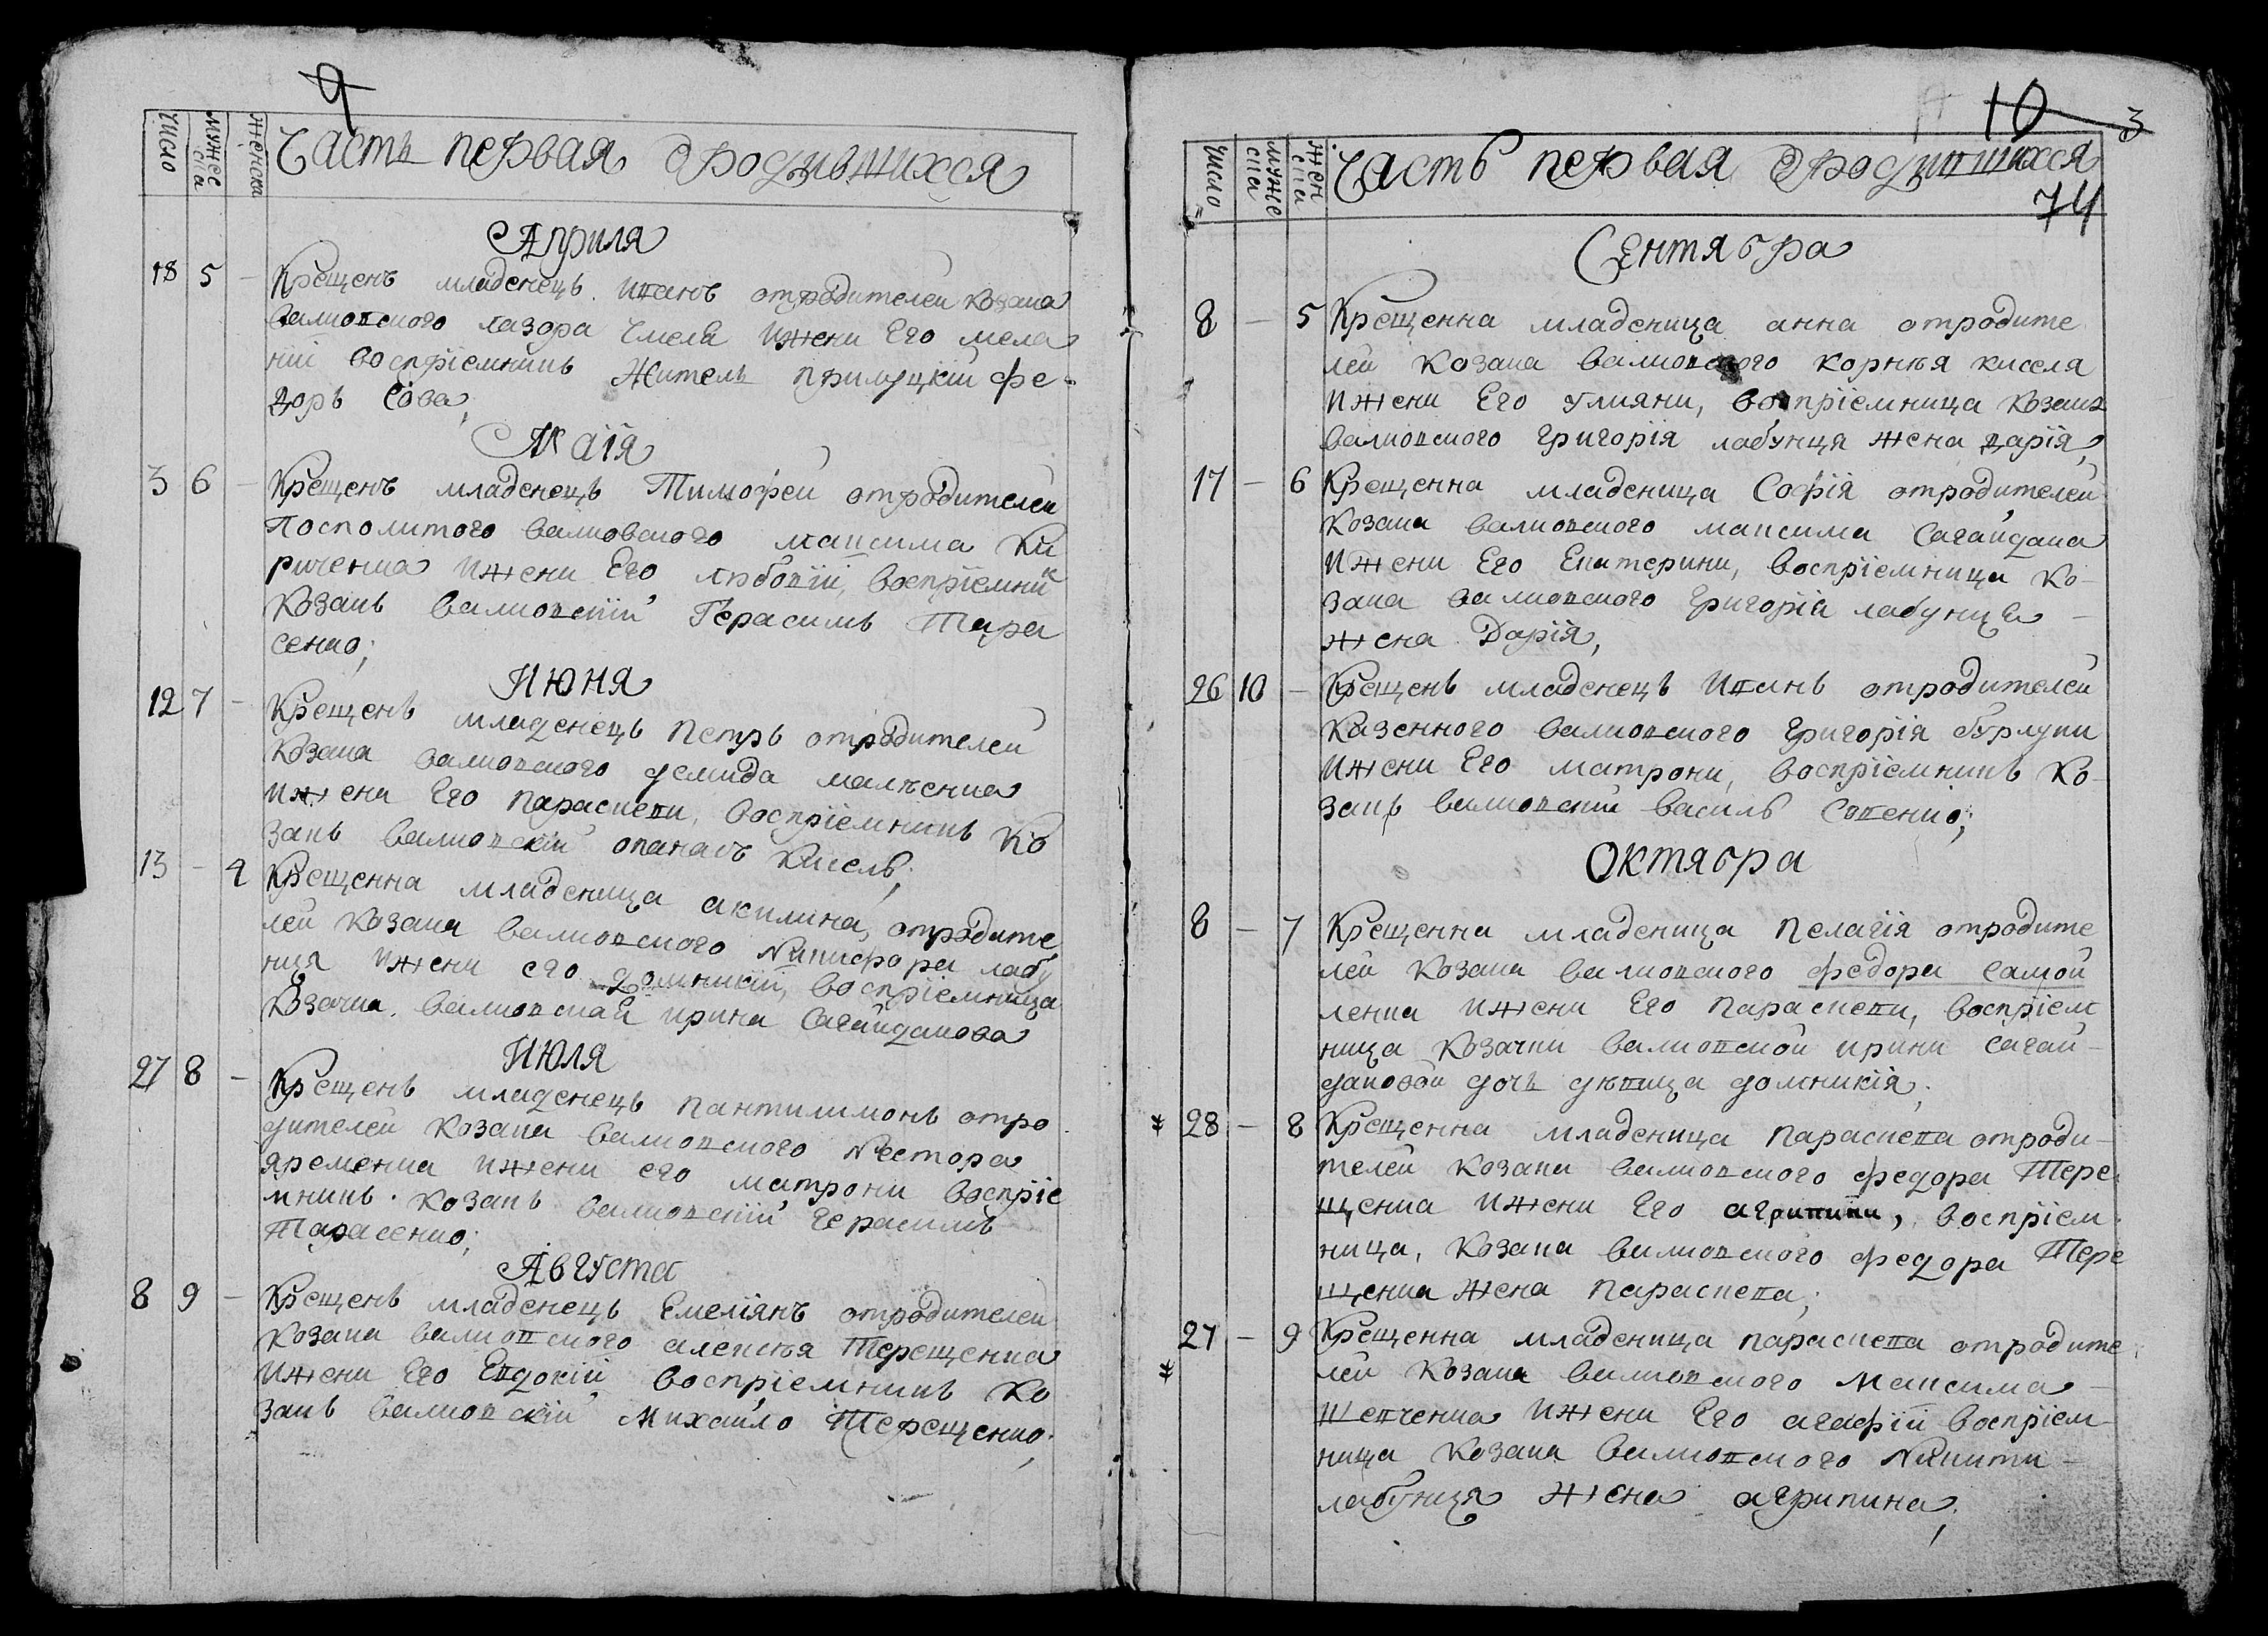 9
число
мужес
ска
женска
Часть первая ородившихся
Априля
18 5 – Крещенъ младенецъ Иванъ отродителей козака
валковского лазора Чмеля Ижени Его мела
ніи воспріемникъ Житель прилуцкій фе-
доръ Сова,
Маія
3 6 – Крещенъ младенецъ Тимофей отродителей
Посполитого валковского максима Ки
риченка Ижени Его любовіи, воспріемник
Козакъ валковскій Герасимъ Тара
сенко;
Июня
12 7 – Крещенъ младенецъ Петръ отродителей
Козака валковского демида малѣенка
Ижени Его Параскеви, воспріемникъ Ко
закъ валковскій опанасъ Кисель;
13 – 4 Крещенна младеница акилина, отродите
лей Козака валковского Никифора лабу
нця Ижени его домникіи, воспріемница
Козачка валковская ирина Сагайдакова
Июля
27 8 – Крещенъ младенецъ пантилимонъ отро
дителей Козака валковского Нестора
яременка Ижени его матрони воспріе
мникъ. Козакъ валковскій герасимъ
Тарасенко;
Августа
8 9 – Крещенъ младенецъ Емеліянъ отродителей
Козака валковского алексѣя Терещенка
Ижени Его Евдокіи воспріемникъ Ко
закъ валковскій Михайло Терещенко,
10 3
число
мужес
ска
жен
ска
Часть первая ородившихся
74
Сентября
8 – 5 Крещенна младеница анна отродите
лей Козака валковского корнѣя киселя
Ижени Его Улияни, воспріемница Козака
валковского григорія лабунця жена дарія,
17 – 6 Крещенна младеница Софія отродителей
Козака валковского максима Сагайдака
Ижени Его Екатерини, воспріемница Ко-
зака валковского григорія лабунця –
жена Дарія,
26 10 – Крещенъ младенецъ Иванъ отродителей
Казенного валковского григорія бурлуки
Ижени Его матрони, воспріемникъ Ко-
закъ валковскій василь Совенко;
Октября
8 – 7 Крещенна младеница Пелагія отродите
лей Козака валковского федора Самой
ленка Ижени Его Параскеви, воспріем
ница Козачки валковской ирини Сагай-
даковой дочь дѣвица домникія,
28 – 8 Крещенна младеница параскева отроди-
телей Козака валковского федора Тере
щенка Ижени Его агрипини, воспріем
ница, Козака валковского федора Тере
щенка жена Параскева;
27 – 9 Крещенна младеница параскева отродите
лей Козака валковского Максима –
Шевченка Ижени Его агафіи воспріем
ница Козака валковского Никити –
лабунця жена агрипина,